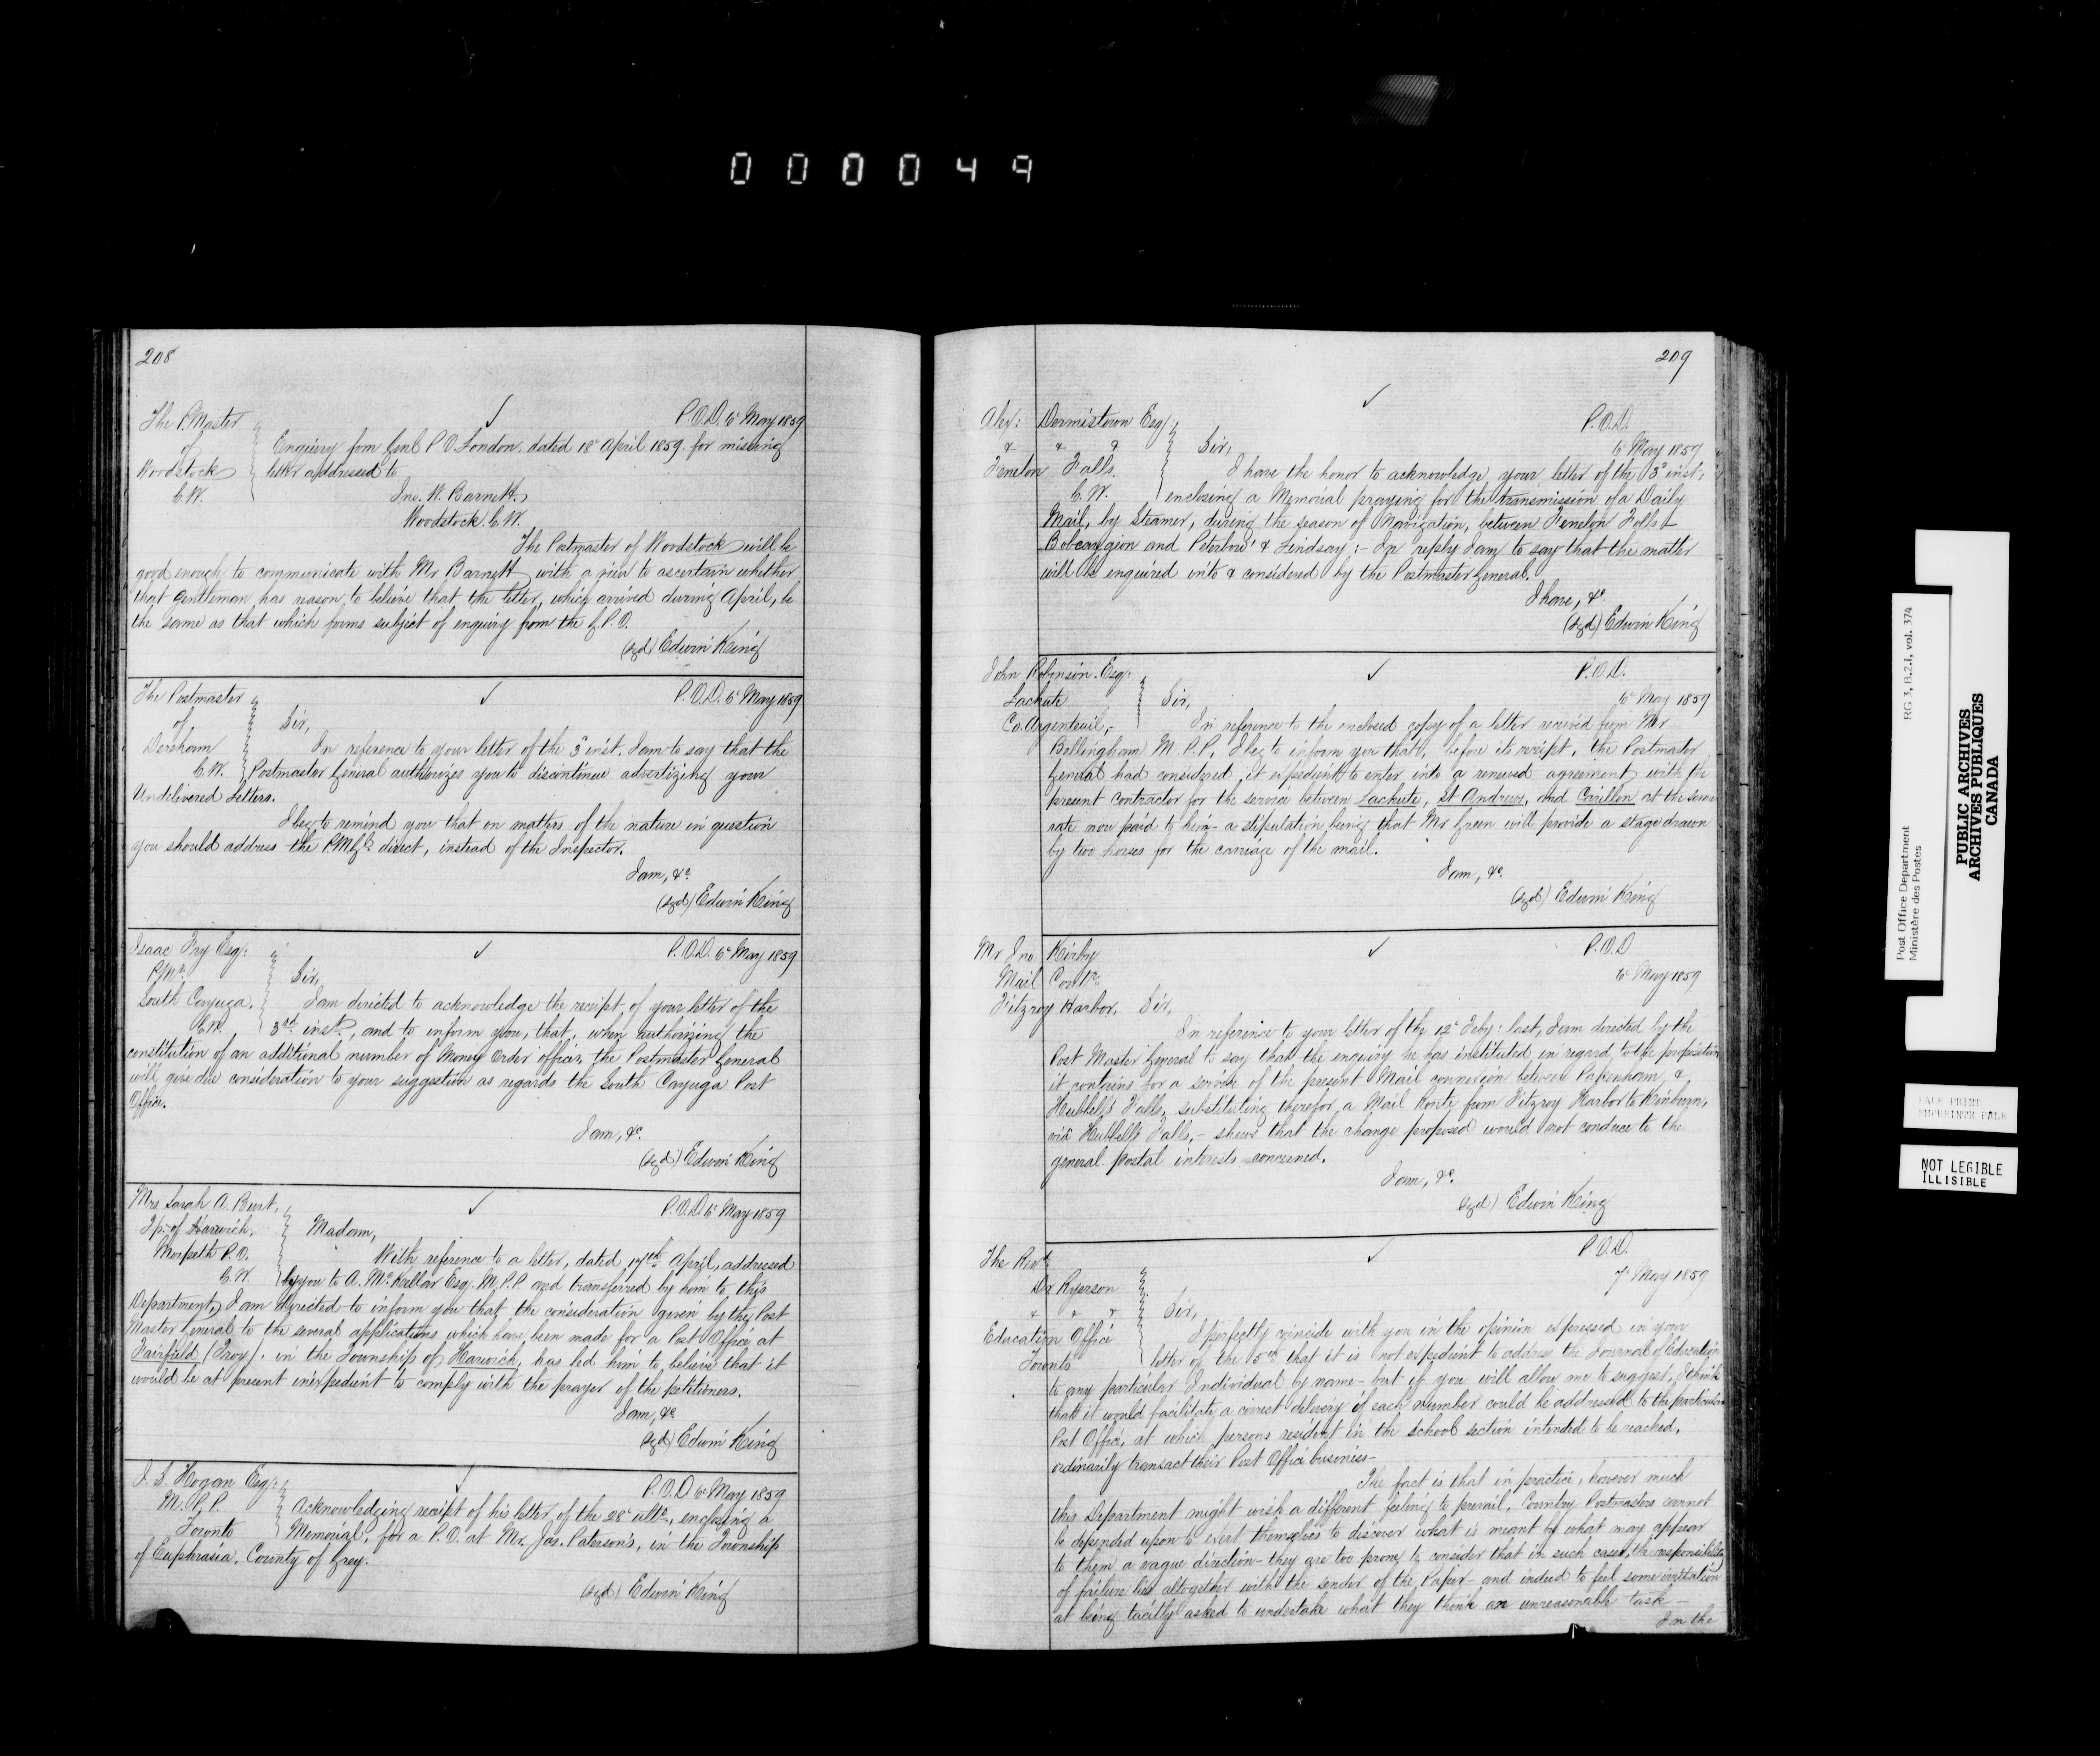 000049
208
The P.Master
of
Woodstock
C.W.
P.O.D. 6 May 1859
Enquiry from Genl P O London, dated 18 April 1859. for missing
letter addressed to
Jno. W. Barnett.
Woodstock. C.W.
The Postmaster of Woodstock will be
good enough to communicate with Mr Barnett with a view to ascertain whether
that Gentleman has reason to believe that the letter, which arrived during April, be
the same as that which forms subject of enquiry from the G.P.O.
(sgd) Edwin King
The Postmaster
of
Dereham
C.W.
P.O.D. 6 May 1859
Sir,
In reference to your letter of the 3 inst. I am to say that the
Postmaster General authorizes you to discontinue advertizing your
Undelivered Letters.
I beg to remind you that on matters of the nature in question
you should address the PMGl direct, instead of the Inspector.
I am, &c
(sgd) Edwin King
Isaac Fry Esq:
P.Mr.
South Cayuga.
C.W.
P.O.D. 6 May 1859
Sir,
I am directed to acknowledge the receipt of your letter of the
3rd inst., and to inform you, that, when authorizing the
constitution of an additional number of Money Order offices, the Postmaster General
will give due consideration to your suggestion as regards the South Cayuga Post
Office.
I am, &c.
(sgd) Edwin King
Mrs Sarah A. Burt.
Tp. of Harwich.
Morpeth P.O.
C.W.
P.O.D. 6 May 1859
Madam,
With reference to a letter, dated 17th April, addressed
by you to A. McKellar Esq. M.P.P. and transferred by him to this
Department, I am directed to inform you that the consideration given by the Post
Master General to the several applications which have been made for a Post Office at
Fairfield (Troy), in the Township of Harwich, has led him to believe that it
would be at present inexpedient to comply with the prayer of the petitioners.
I am, &c
(sgd) Edwin King
J. S. Hogan Esq:
M.P.P.
Toronto
P.O.D 6 May 1859
Acknowledging receipt of his letter of the 28 ulto, enclosing a
Memorial, for a P.O. at Mr. Jas. Paterson's, in the Township
of Euphrasia, County of Grey.
(sgd) Edwin King
209
Alex: Dennistown Esq:
& & &
Fenelon Falls.
C.W.
P.O.D.
6 May 1859
Sir,
I have the honor to acknowledge your letter of the 3 inst:
enclosing a Memorial praying for the transmission of a Daily
Mail, by Steamer, during the season of Navigation, between Fenelon Falls &
Bobcaygion and Peterboro' & Lindsay:- In reply I am to say that the matter
will be enquired into & considered by the Postmaster General.
I have, &c
(sgd) Edwin King
John Robinson. Esq:
Lachute
Co. Argenteuil,
P.O.D.
6 May 1859
Sir,
In reference to the enclosed copy of a letter received from Mr
Bellingham M.P.P. I beg to inform you that, before its receipt, the Postmaster
General had considered it expedient to enter into a renewed agreement with the
present contractor for the service between Lachute, St Andrews, and Carillon at the same
rate now paid to him - a stipulation being that Mr Green will provide a stage drawn
by two horses for the carriage of the mail.
I am, &c.
(sgd) Edwin King
Mr Jno Kirby
Mail Contr.
Fitzroy Harbor.
P.O.D
6 May 1859
Sir,
In reference to your letter of the 12 Feby: last, I am directed by the
Post Master General to say that the enquiry he has instituted, in regard to the proposition
it contains for a service of the present Mail connexion between Pakenham &
Hubbell's Falls, substituting therefor, a Mail Route from Fitzroy Harbor to Kinburn,
via Hubbell's Falls, - shews that the change proposed would not conduce to the
general postal interests concerned.
I am, &c.
(sgd) Edwin King
The Revd.
Dr Ryerson
& & &
Education Office
Toronto
P.O.D.
7 May 1859
Sir,
I perfectly coincide with you in the opinion expressed in your
letter of the 5th that it is not expedient to address the Journal of Education
to any particular Individual by name - but if you will allow me to suggest, I think
that it would facilitate a correct delivery if each number could be addressed to the particular
Post Office, at which persons resident in the school section intended to be reached,
ordinarily transact their Post Office business -
The fact is that in practice, however much
this Department might wish a different feeling to prevail, Country Postmasters cannot
be depended upon to exert themselves to discover what is meant by what may appear
to them a vague direction - they are too prone to consider that in such cases, the responsibility
of failure lies altogether with the sender of the Paper - and indeed to feel some irritation
at being tacitly asked to undertake what they think an unreasonable task -
In the
Post Office Department
Ministère des Postes
RG 3, B.2.1, vol. 374
PUBLIC ARCHIVES
ARCHIVES PUBLIQUES
CANADA
NOT LEGIBLE
ILLISIBLE